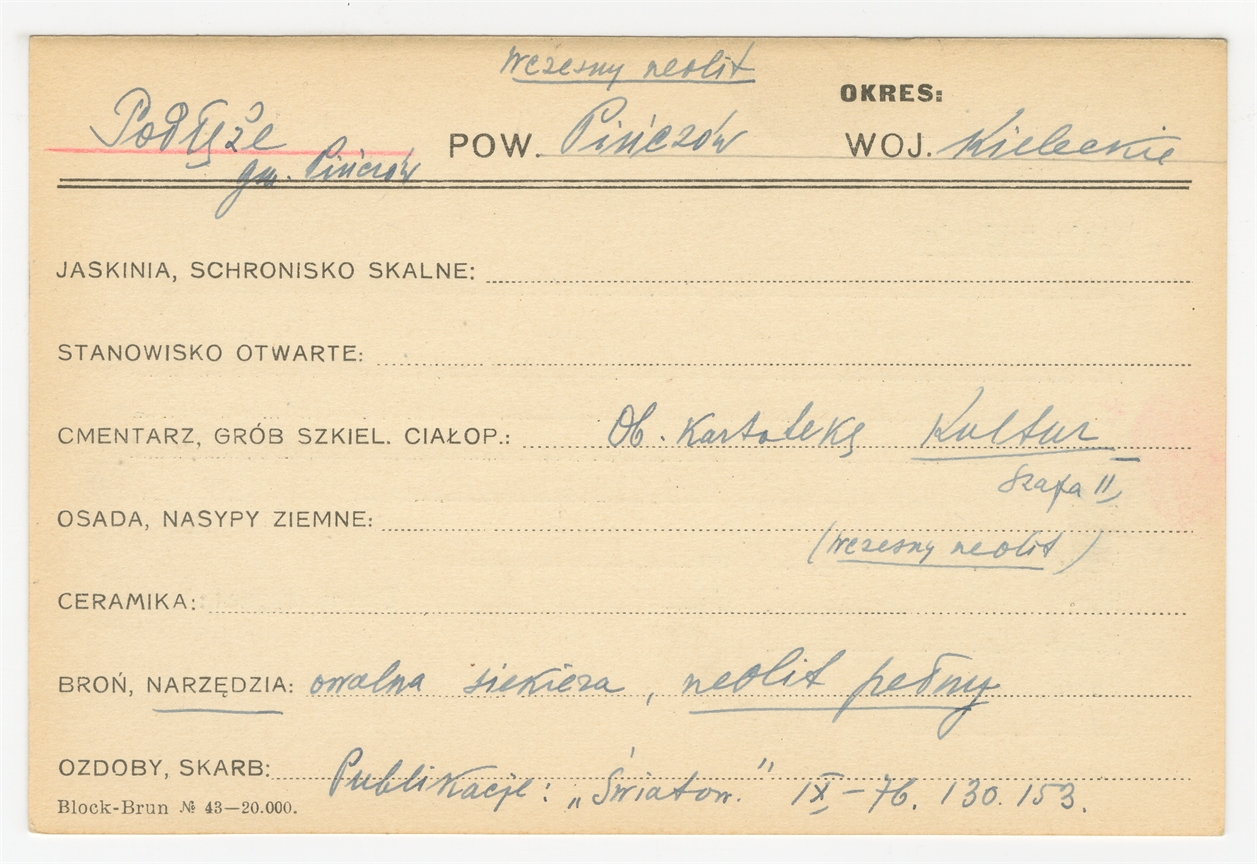 wczesny neolit
OKRES:
Podłęże POW. Pińczów WOJ. Kieleckie
gm. Pińczów
JASKINIA, SCHRONISKO SKALNE:
STANOWISKO OTWARTE:
CMENTARZ, GRÓB SZKIEL. CIAŁOP.: Ob. Kartotekę Kultur
Szafa II
OSADA, NASYPY ZIEMNE:
(wczesny neolit)
CERAMIKA:
BROŃ, NARZĘDZIA: owalna siekiera, neolit pełny
OZDOBY, SKARB: Publikacje: „Światow." IX-76. 130. 153.
Block-Brun № 43—20.000.